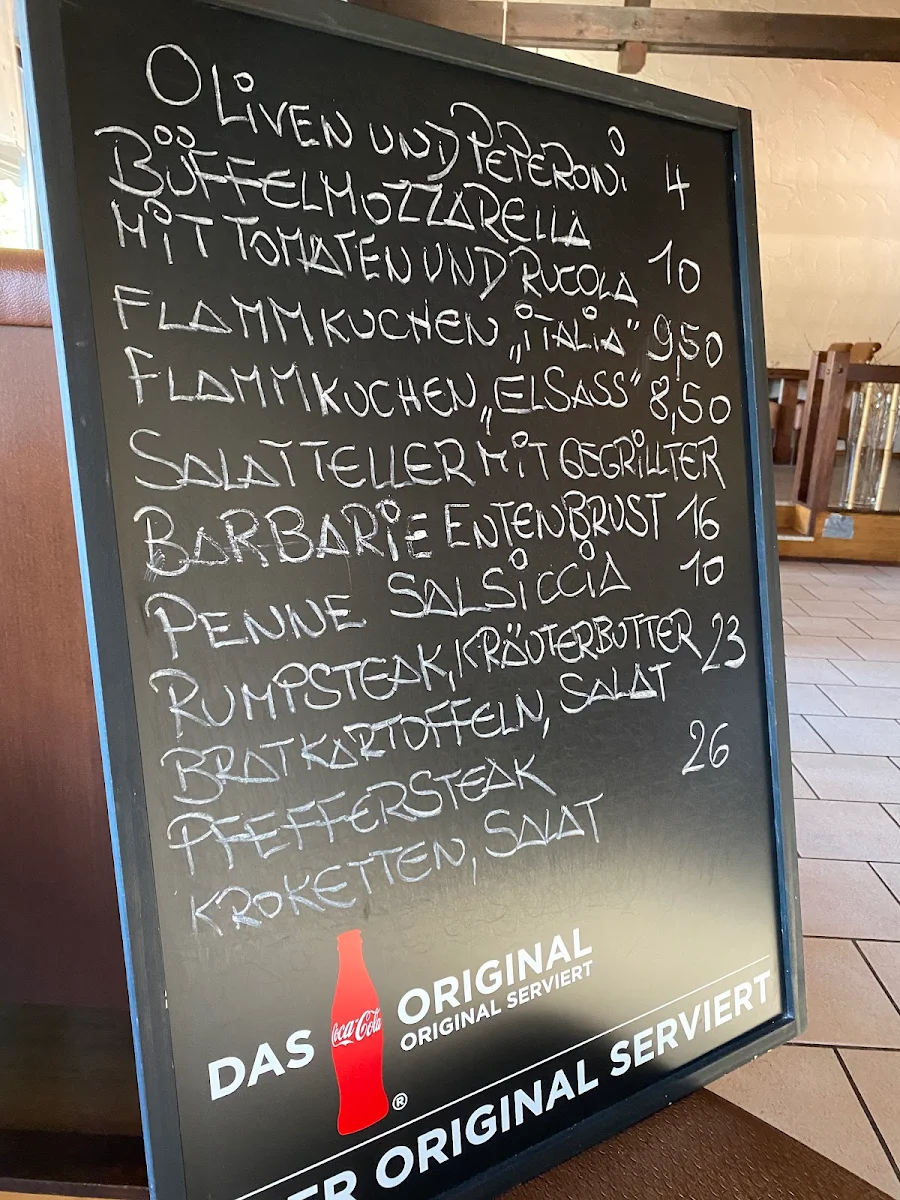 OLiVEN UND PEPERONi 4
BÜFFELMOZZARELLA
MiT TOMATEN UND RUCOLA 10
FLAMMKUCHEN „iTALiA“ 9,50
FLAMMKUCHEN „ELSASS“ 8,50
SALATTELLER MiT GEGRiLLTER
BARBARiE ENTENBRUST 16
PENNE SALSiCCiA 10
RUMPSTEAK, KRÄUTERBUTTER 23
BRATKARTOFFELN, SALAT
PFEFFERSTEAK 26
KROKETTEN, SALAT
DAS Coca-Cola ® ORIGINAL
ORIGINAL SERVIERT
ER ORIGINAL SERVIERT